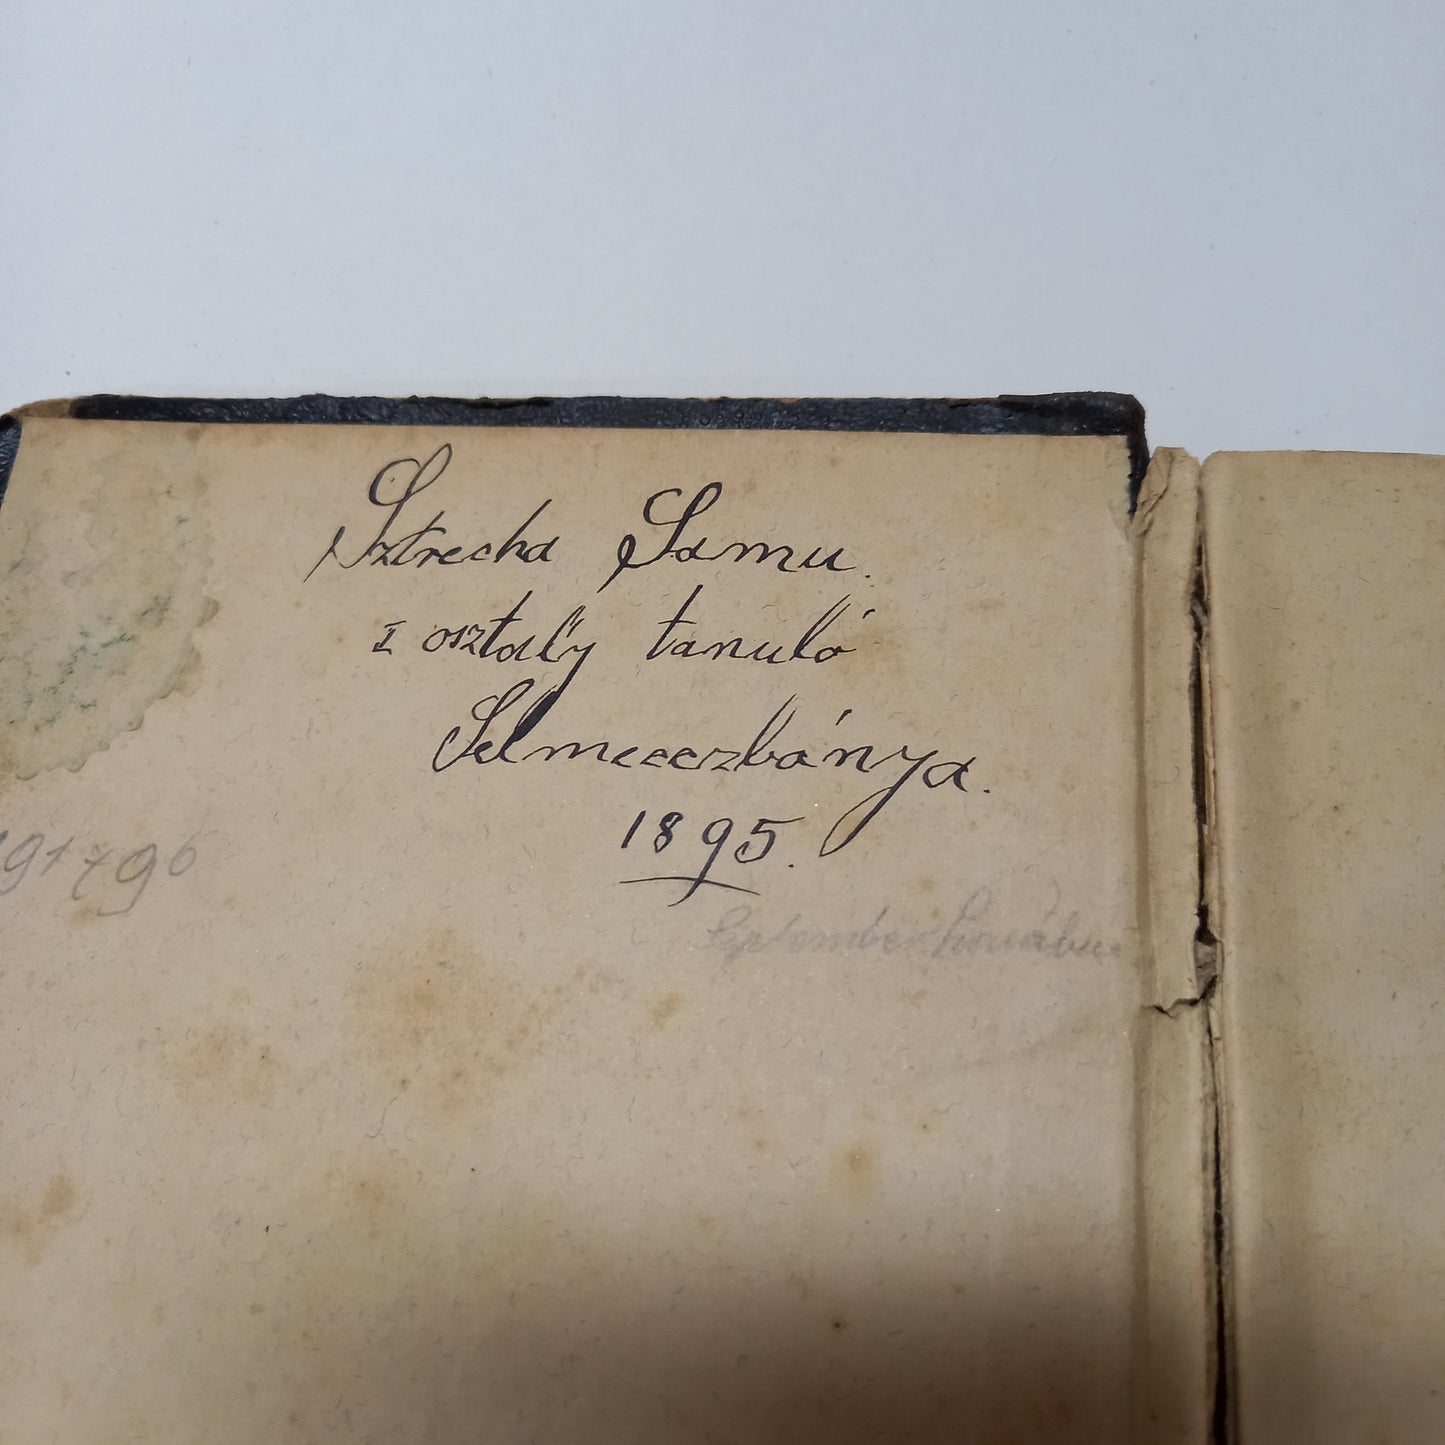 Sztrecha Samu.
I osztaly tanuló
Selmecczbánya.
1895.
September havában